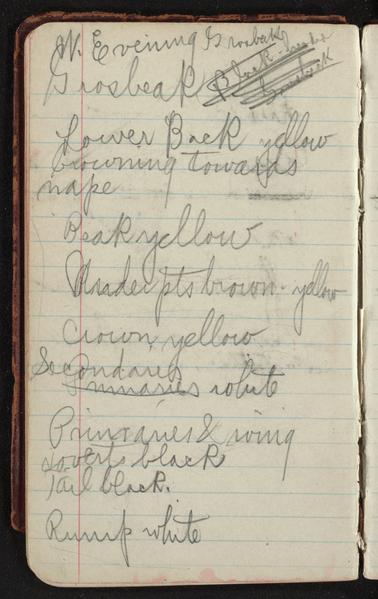 W. Evening Grosbeak
Grosbeak Black-headed Grosbeak
Lower Back yellow
browning towards
nape
Beak yellow
Under pts brown-yellow
Crown yellow
Secondaries
Primaries white
Primaries & wing
coverts black
Tail black.
Rump white